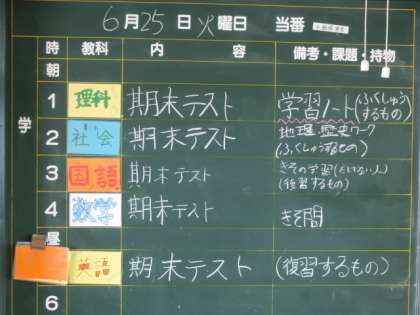 6月25日火曜日 当番
時 教科 内容 備考・課題・持物
朝
学
1 理科 期末テスト 学習ノート(ふくしゅうするもの)
2 社会 期末テスト 地理・歴史ワーク(ふくしゅうするもの)
3 国語 期末テスト きその学習(といない人)(復習するもの)
4 数学 期末テスト きそ問
昼
英語 期末テスト (復習するもの)
6